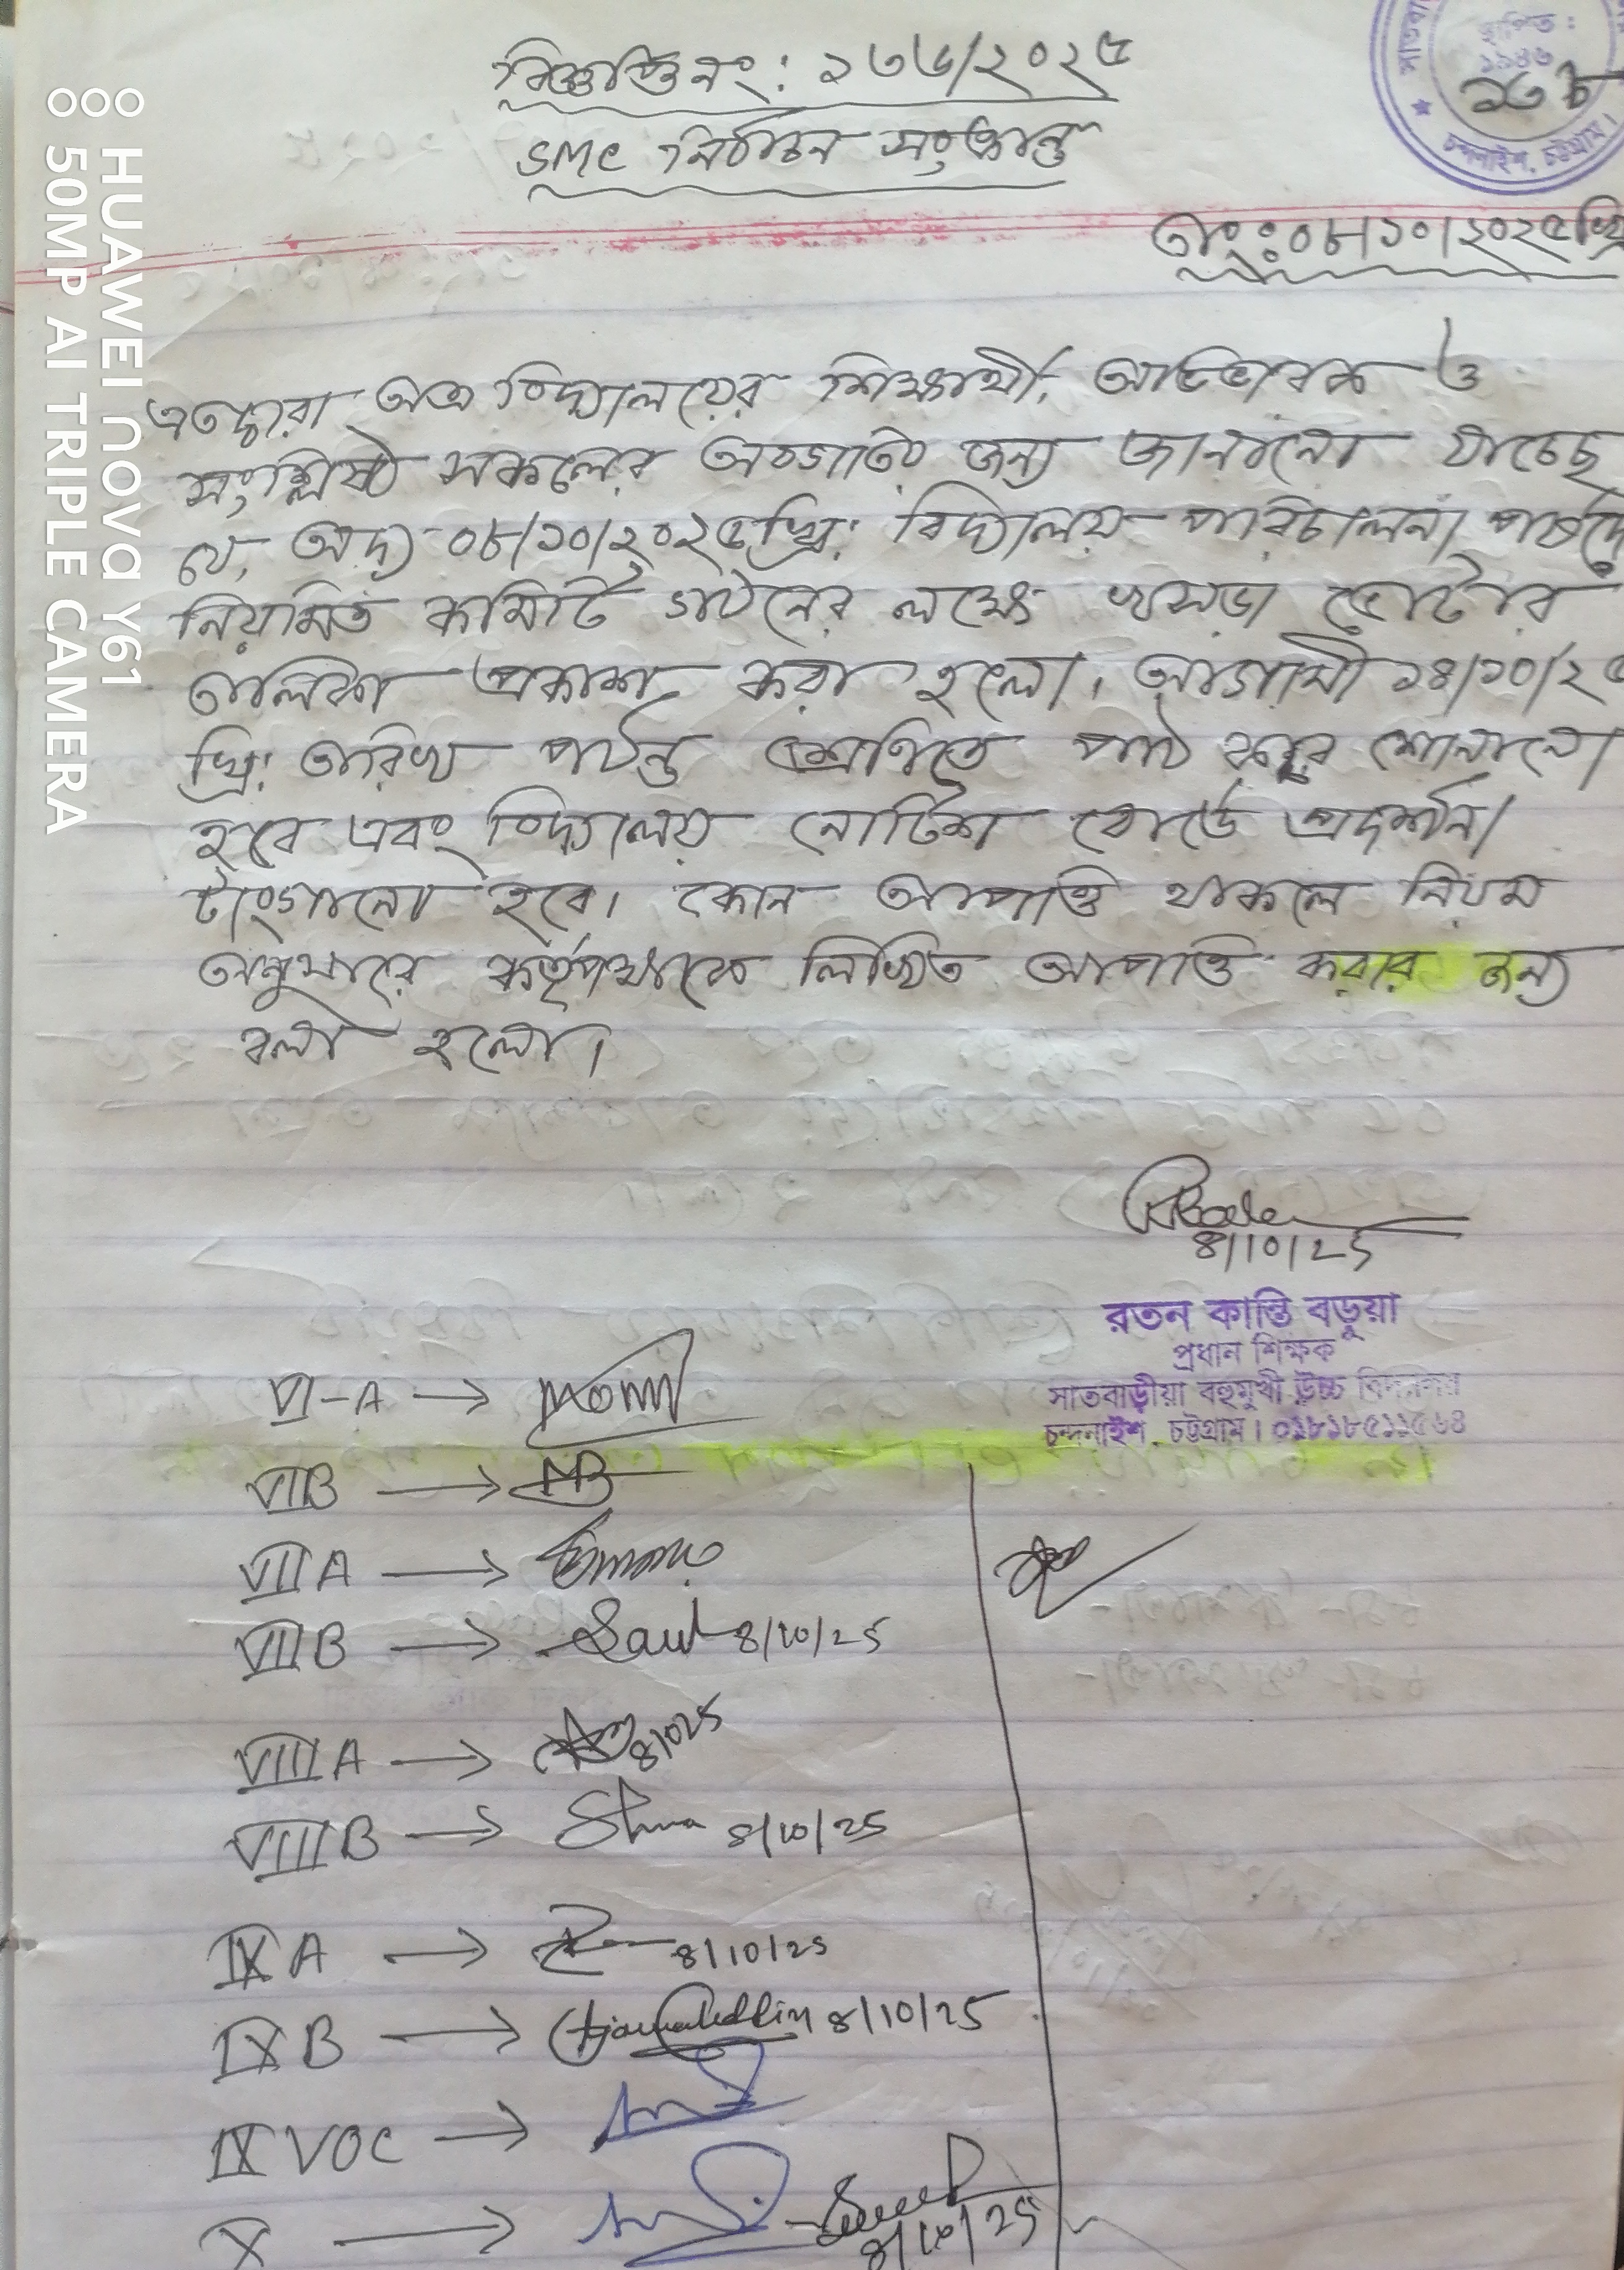 বিজ্ঞপ্তি নং: ১৩৬/২০২৫
স্থাপিত:
১৯৪৬
১৩৮
চন্দনাইশ, চট্টগ্রাম।
SMC নির্বাচন সংক্রান্ত
তাং: ০৮/১০/২০২৫খ্রি
এতদ্বারা অত্র বিদ্যালয়ের শিক্ষার্থী, অভিভাবক ও
সংশ্লিষ্ট সকলের অবগতির জন্য জানানো যাচ্ছে
যে, অদ্য ০৮/১০/২০২৫খ্রি: বিদ্যালয় পরিচালনা পর্ষদে
নিয়মিত কমিটি গঠনের লক্ষ্যে খসড়া ভোটার
তালিকা প্রকাশ করা হলো। আগামী ১৪/১০/২৫
খ্রি: তারিখ পর্যন্ত শ্রেণিতে পাঠ করে শোনানো
হবে এবং বিদ্যালয় নোটিশ বোর্ডে প্রদর্শন/
টাংগানো হবে। কোন আপত্তি থাকলে নিয়ম
অনুসারে কর্তৃপক্ষকে লিখিত আপত্তি করার জন্য
বলা হলো।
8/10/25
রতন কান্তি বড়ুয়া
প্রধান শিক্ষক
সাতবাড়ীয়া বহুমুখী উচ্চ বিদ্যালয়
চন্দনাইশ, চট্টগ্রাম। ০১৮১৮৫১১৫৬৪
VI-A →
VIB →
VIIA →
VIIB → 8/10/25
VIIIA → 8/10/25
VIIIB → 8/10/25
IX A → 8/10/25
IX B → 8/10/25
IX VOC →
X → 8/10/25
HUAWEI nova Y61
50MP AI TRIPLE CAMERA